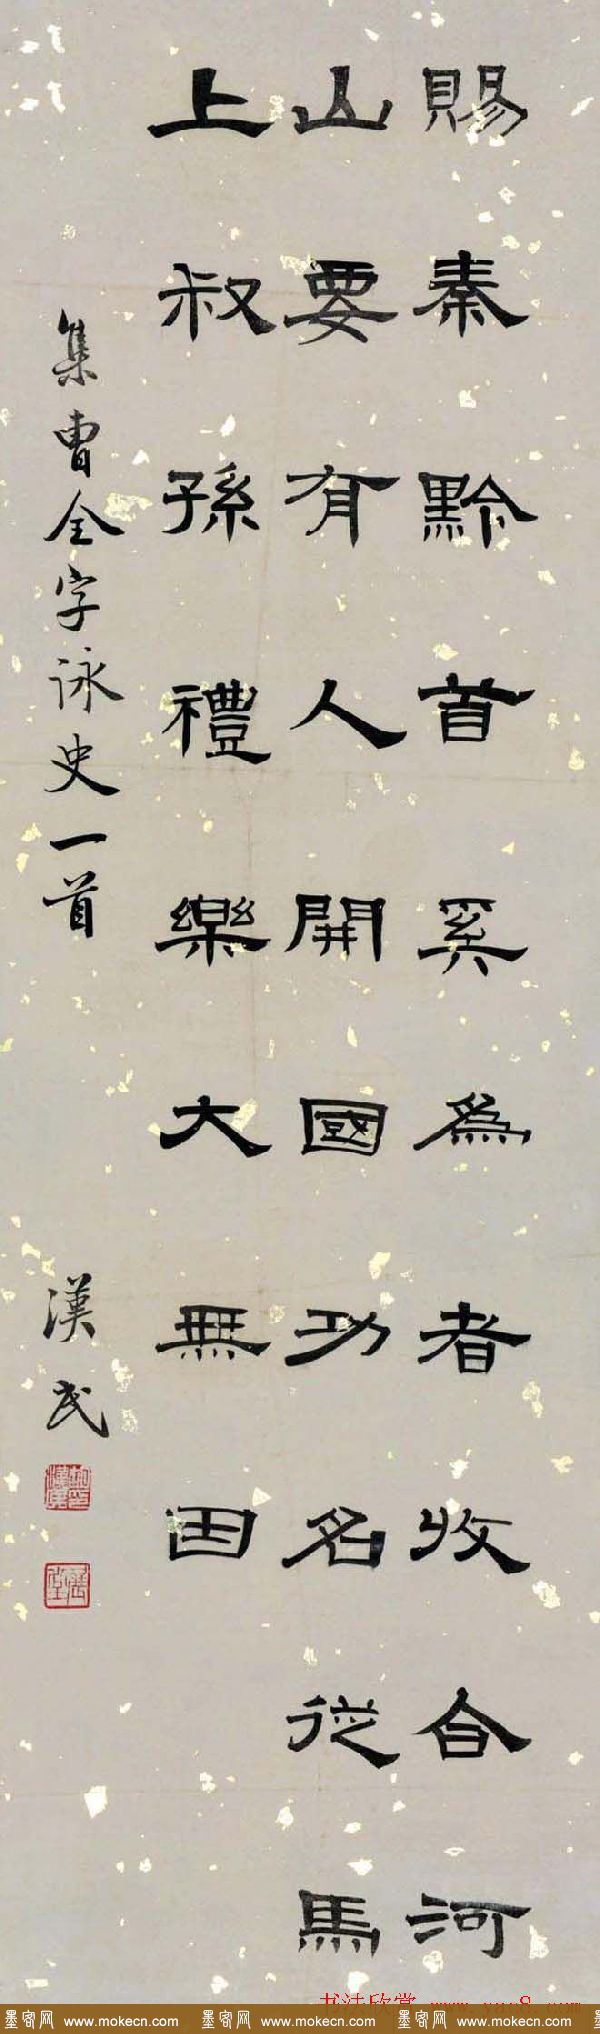 賜秦黔首奚為者收合河
山要有人開國功名從馬
上叔孫禮樂大無因
集曹全字詠史一首
漢民
书法欣赏
墨客网 www.mokecn.com 墨客网 www.mokecn.com 墨客网 www.mokecn.com